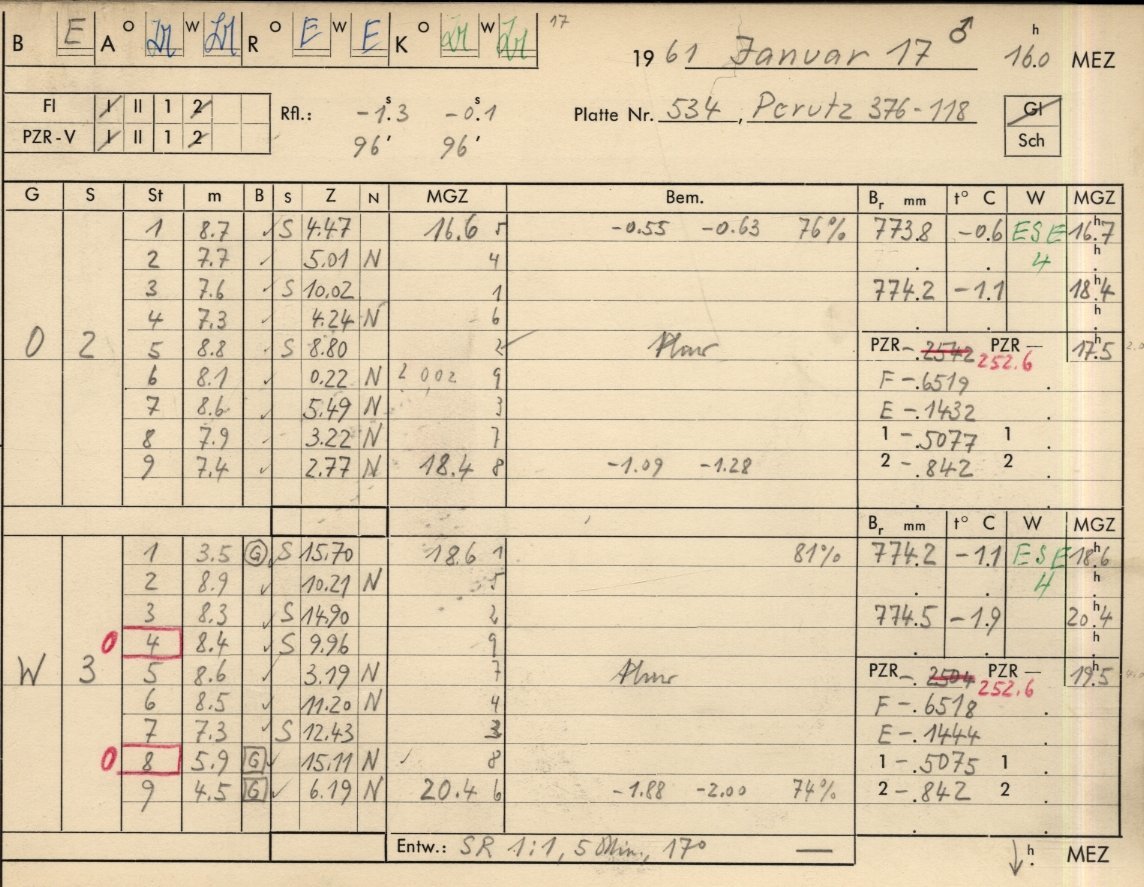 B E A O W R O E W E K O W 17
19 61 Januar 17 ♂ 16.0 h MEZ
Fl I II 1 2 Rfl.: -1.3 s -0.1 s Platte Nr. 534, Perutz 376-118 Gl
PZR-V I II 1 2 96' 96' Sch
G S St m B S Z N MGZ Bem. Br mm t° C W MGZ
1 8.7 ✓ S 4.47 16.6 5 -0.55 -0.63 76% 773.8 -0.6 ESE 16.7 h
2 7.7 ✓ 5.01 N 4 4 h
3 7.6 S 10.02 1 774.2 -1.1 18.4 h
4 7.3 ✓ 4.24 N 6 h
O 2 5 8.8 ✓ S 8.80 2 ✓ PZR -.2542 PZR — 252.6 17.5 h
6 8.1 ✓ 0.22 N 2 002 9 F -.6519
7 8.6 ✓ 5.49 N 3 E -.1432
8 7.9 ✓ 3.22 N 7 1 -.5077 1
9 7.4 ✓ 2.77 N 18.4 8 -1.09 -1.28 2 -.842 2
Br mm t° C W MGZ
1 3.5 G ✓ S 15.70 18.6 1 81% 774.2 -1.1 ESE 18.6 h
2 8.9 ✓ 10.21 N 5 4 h
3 8.3 ✓ S 14.90 2 774.5 -1.9 20.4 h
0 4 8.4 ✓ S 9.96 9 h
W 3 5 8.6 ✓ 3.19 N 7 PZR -.2504 PZR — 252.6 19.5 h
6 8.5 ✓ 11.20 N 4 F -.6518
7 7.3 ✓ S 12.43 3 E -.1444
0 8 5.9 G ✓ 15.11 N ✓ 8 1 -.5075 1
9 4.5 G ✓ 6.19 N 20.4 6 -1.88 -2.00 74% 2 -.842 2
Entw.: SR 1:1, 5 Min, 17° — h MEZ